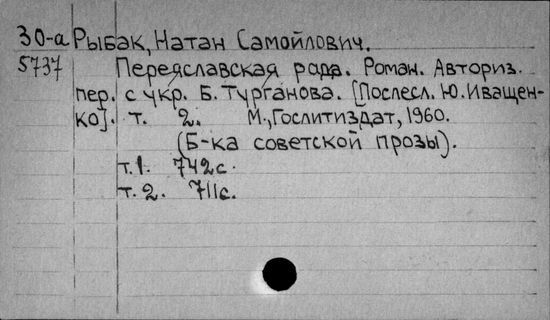 30-а Рыбак, Натан Самойлович.
5737 Переяславская рада. Роман. Авториз.
пер. с укр. Б. Турганова. [Послесл. Ю. Иващен-
ко]. т. 2. М., Гослитиздат, 1960.
(Б-ка советской прозы).
т. 1. 742 с.
т. 2. 711 с.